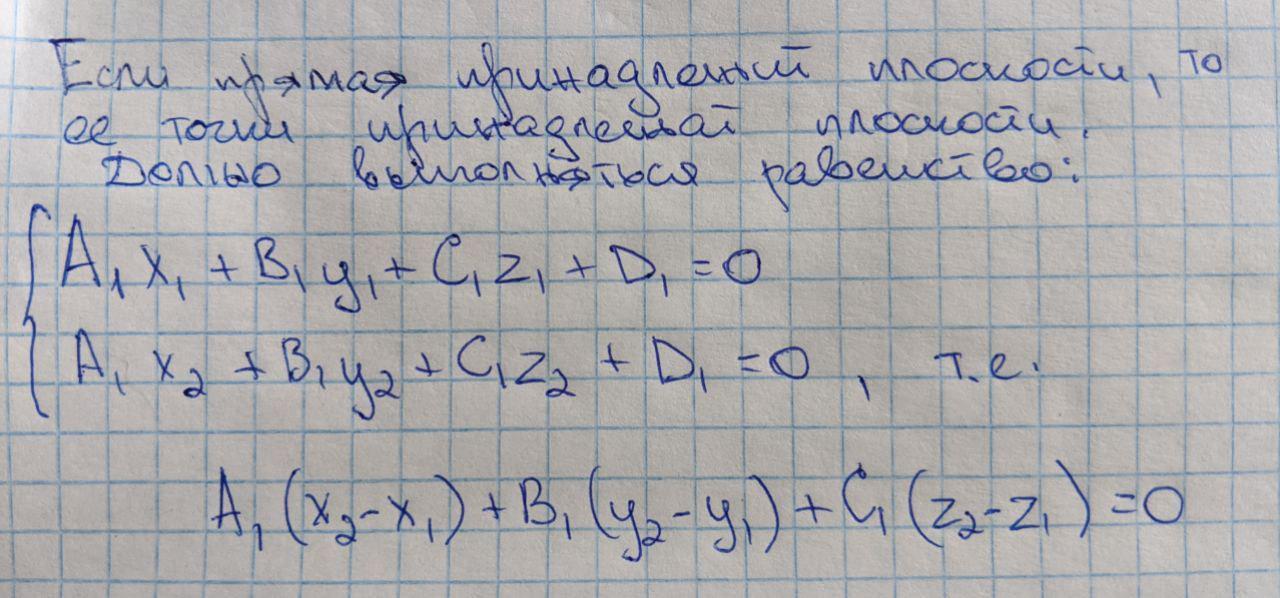 Если прямая принадлежит плоскости, то
ее точки принадлежат плоскости.
Должно выполняться равенство:
A₁x₁ + B₁y₁ + C₁z₁ + D₁ = 0
A₁x₂ + B₁y₂ + C₁z₂ + D₁ = 0, т.е.
A₁(x₂-x₁) + B₁(y₂-y₁) + C₁(z₂-z₁) = 0